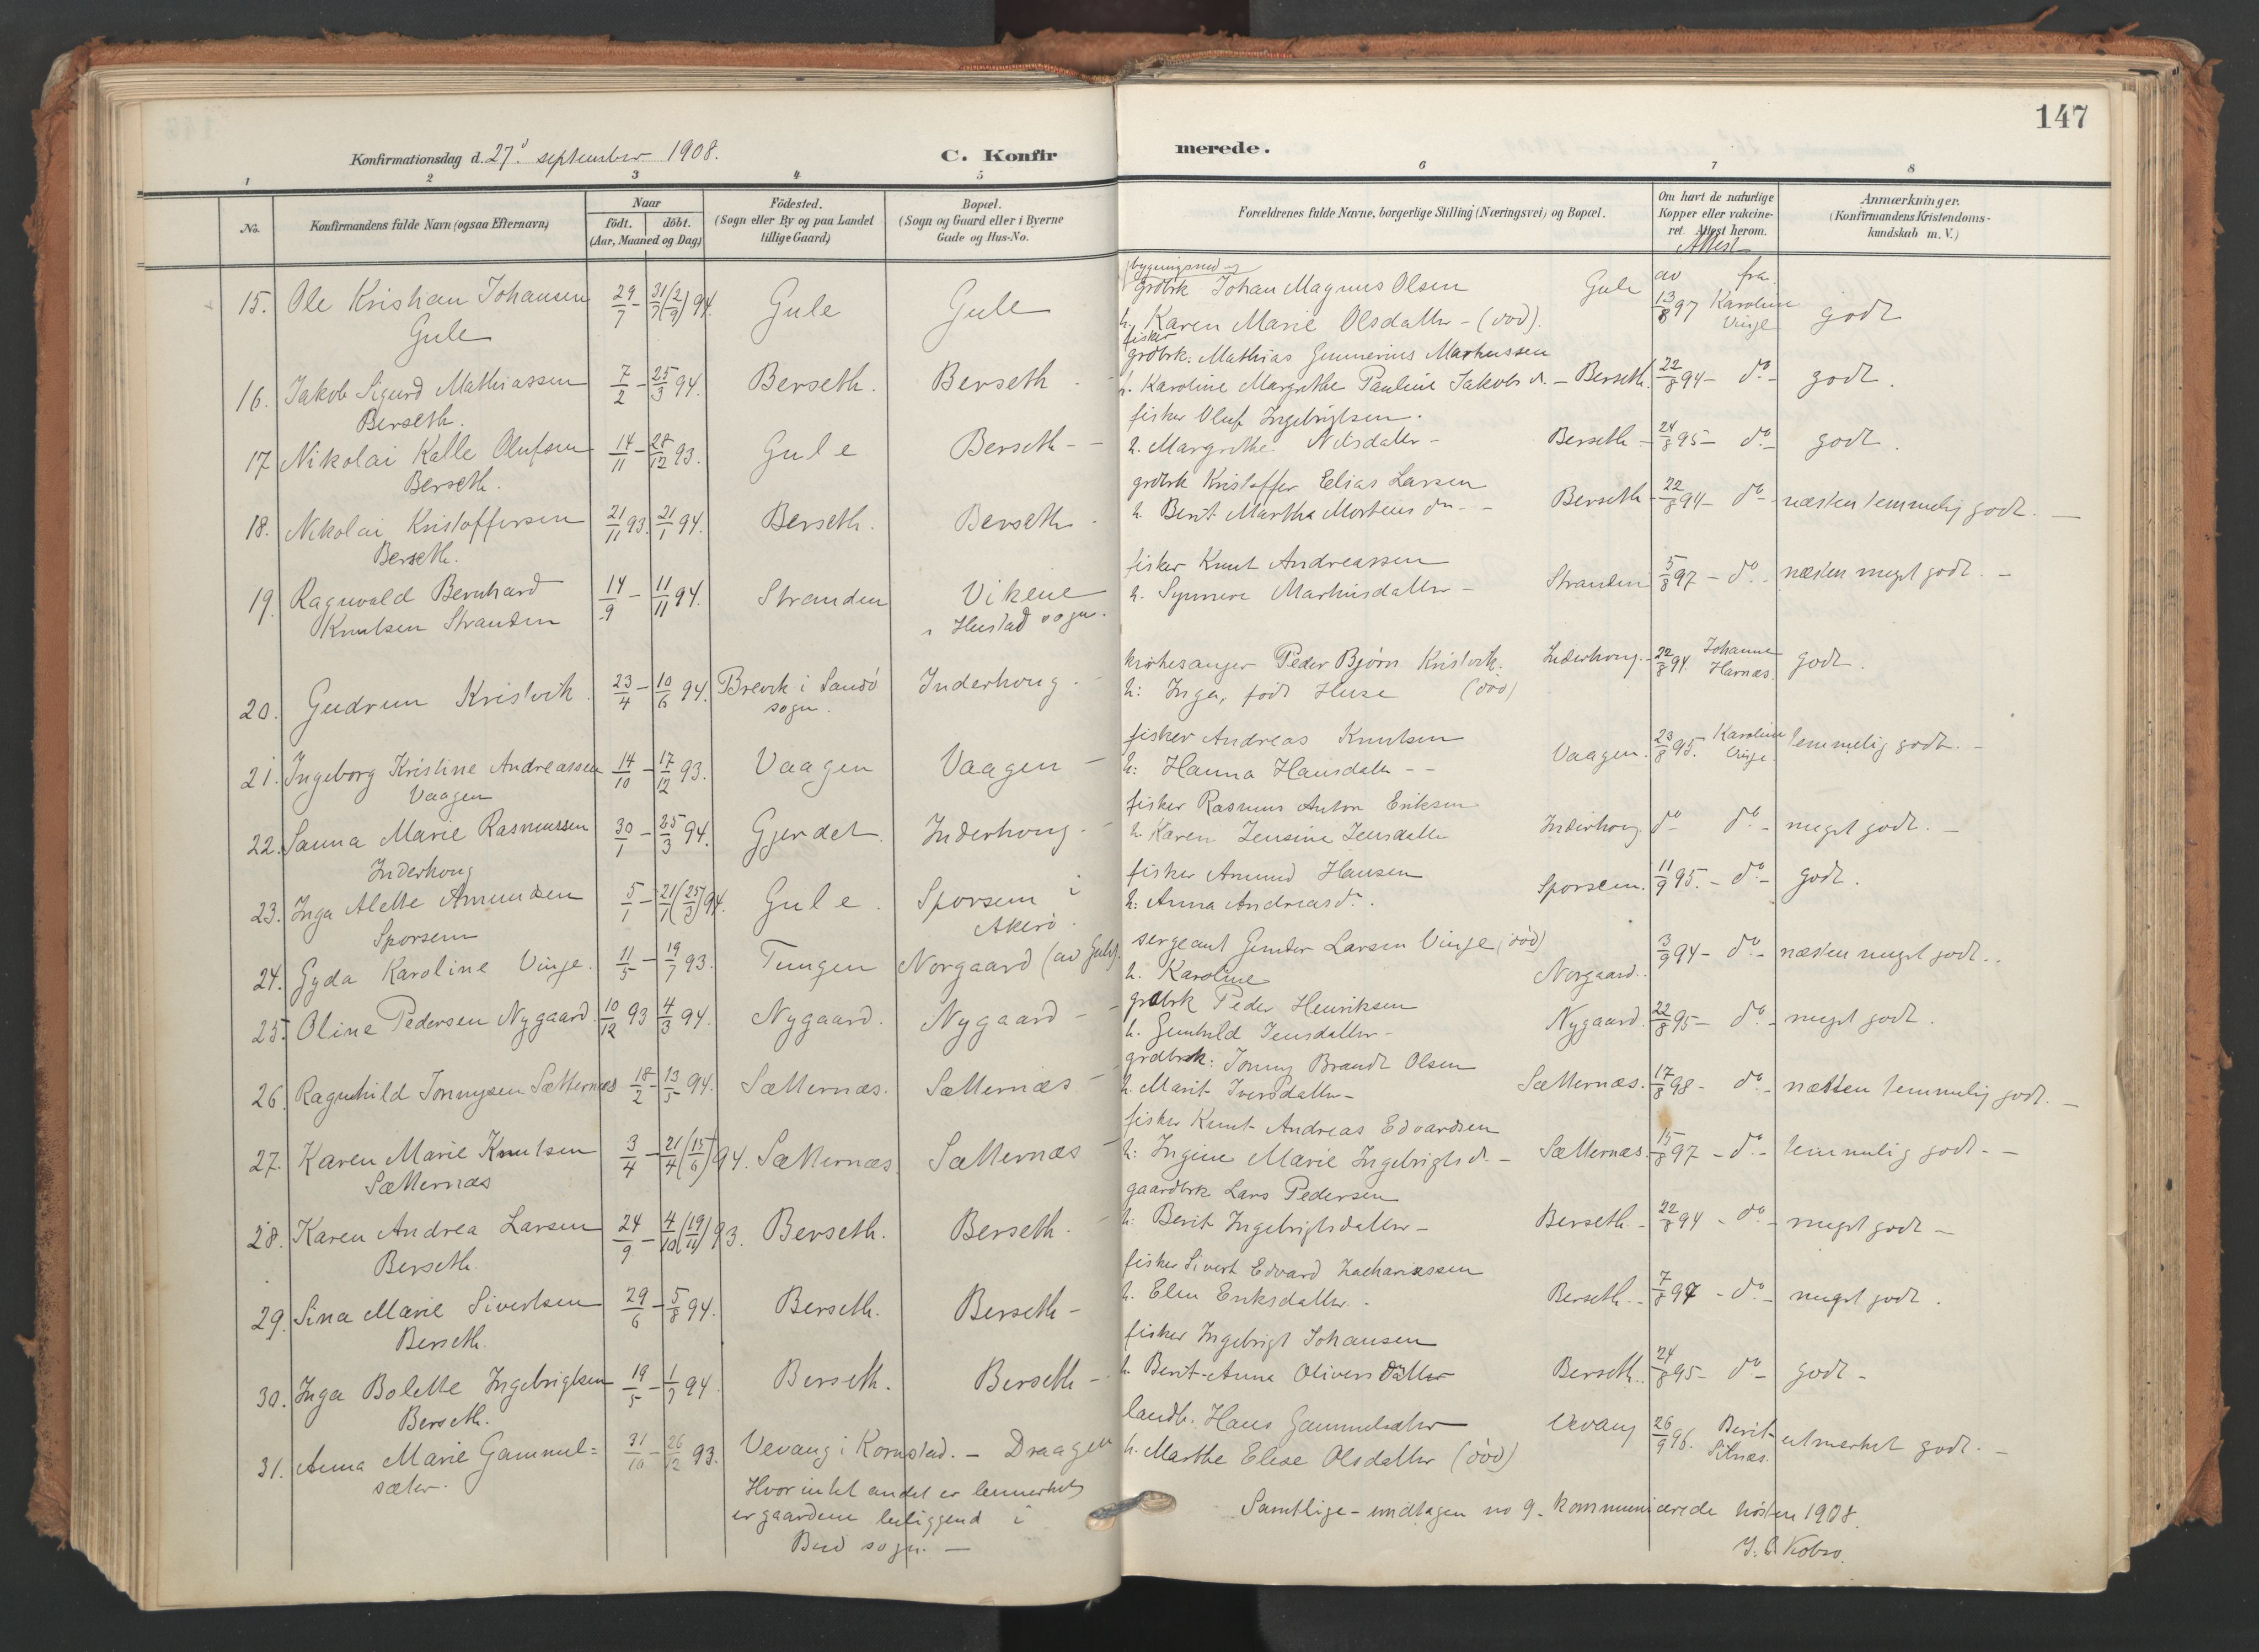 147
Konfirmationsdag d. 27d september 1908.
C. Konfir
merede.
1 2 3 4 5 6 7 8
No.
Konfirmandens fulde Navn (ogsaa Efternavn)
Naar
födt. döbt.
(Aar, Maaned og Dag)
Födested.
(Sogn eller By og paa Landet
tillige Gaard)
Bopæl.
(Sogn og Gaard eller i Byerne
Gade og Hus-No.
Forældrenes fulde Navne, borgerlige Stilling (Næringsvei) og Bopæl.
Om havt de naturlige
Kopper eller vakcine-
ret. Attest herom.
Anmærkninger.
(Konfirmandens Kristendoms-
kundskab m. V.)
Attest
av fra
15. Ole Kristian Johansen 29/7 - 31/7 (2/9) 94. Gule Gule
Gule
bygningssned og
grdbrk Johan Magnus Olsen Gule 13/8 97 Karoline Vinje godt
h. Karen Marie Olsdatter - (død).
16. Jakob Sigurd Mathiassen 7/2 - 25/3 94. Berseth. Berseth
Berseth.
fisker
grdbrk. Mathias Gunnerius Markussen
h. Karoline Margrethe Pauline Jakobsd. - Berseth. 22/8 94 - do - godt.
17 Nikolai Kalle Olufsen 14/11 - 28/12 93. Gule Berseth -
Berseth.
fisker Oluf Ingebrigtsen.
h. Margrethe Nilsdatter - Berseth - 24/8 95 - do - godt.
18. Nikolai Kristoffersen 21/11 93. 21/1 94. Berseth. Berseth
Berseth.
grdbrk Kristoffer Elias Larsen
h. Berit Martha Mortensdtr. - Berseth - 22/8 94 - do - næsten temmelig godt.
19. Ragnvald Bernhard 14/9 - 11/11 94. Stranden Vikene
Knutsen Stranden i Hustad sogn.
fisker Knut Andreassen
h. Synnøve Markusdatter - Stranden 5/8 97 - do - næsten meget godt. -
20. Gudrun Kristvik. 23/4 - 10/6 94. Brevik i Sandö Inderhoug.
sogn.
kirkesanger Peder Bjørn Kristvik. Inderhoug. 22/8 94. Johanne Harnæs. godt.
h: Inga, født Huse (død)
21. Ingeborg Kristine Andreassen 14/10 - 17/12 93. Vaagen Vaagen -
Vaagen
fisker Andreas Knutsen
h: Hanna Hansdatter - - Vaagen. 23/8 95. Karoline Vinje. temmelig godt. -
22. Sanna Marie Rasmussen 30/1 - 25/3 94. Gjerdet. Inderhoug.
Inderhoug
fisker Rasmus Anton Eriksen
h. Karen Jensine Jensdatter Inderhoug do do - meget godt. -
23. Inga Alette Amundsen 5/1 - 21/1 (25/3) 94. Gule. Sporsem i
Sporsem Akerö.
fisker Amund Hansen
h: Anna Andreasd. Sporsem. 11/9 95. - do - godt.
24. Gyda Karoline Vinje. 11/5 - 19/7 93. Tungen Norgaard (av Gule).
sergeant Gunder Larsen Vinje (død)
h. Karoline Norgaard. 3/9 94 - do - næsten meget godt.
25. Oline Pedersen Nygaard. 10/12 93 4/3 94. Nygaard. Nygaard -
grdbrk Peder Henriksen
h. Gunhild Jensdatter - Nygaard. 22/8 95 - do - meget godt.
26. Ragnhild Jonnysen Sætternæs 18/2 - 13/5 94. Sætternæs. Sætternæs -
grdbrk. Jonny Brandt Olsen
h. Marit Iversdatter - Sætternæs. 17/8 98 - do - næsten temmelig godt. -
27. Karen Marie Knutsen 3/4 - 21/4 (15/6) 94. Sætternæs. Sætternæs
Sætternæs
fisker Knut Andreas Edvardsen
h: Ingine Marie Ingebrigtsd. - Sætternæs. 15/8 97 - do - temmelig godt - -
28. Karen Andrea Larsen 24/9 - 4/10 (19/11) 93. Berseth. Berseth.
Berseth.
gaardbrk Lars Pedersen
h: Berit Ingebrigtsdatter - Berseth. - 22/8 94 - do - meget godt -
29. Sina Marie Sivertsen 29/6 - 5/8 94. Berseth. Berseth -
Berseth.
fisker Sivert Edvard Zachariassen
h. Elen Eriksdatter. Berseth. - 7/8 97 - do - meget godt.
30. Inga Bolette Ingebrigtsen 19/5 - 1/7 94. Berseth. Berseth -
Berseth.
fisker Ingebrigt Johansen
h. Berit-Anna Oliversdatter Berseth. 24/8 95 - do - godt -
31. Anna Marie Gammel= 31/10 - 26/12 93. Vevang i Kornstad. - Draagen
sæter.
landh. Hans Gammelsæter Vevang 26/9 96. Berit Sitnæs. utmerket godt. -
h. Marthe Elise Olsdatter (død)
Hvor intet andet er bemerket,
er gaardene beliggend i
Bud sogn. -
Samtlige - undtagen no 9 - kommunicerede høsten 1908.
Kobro.